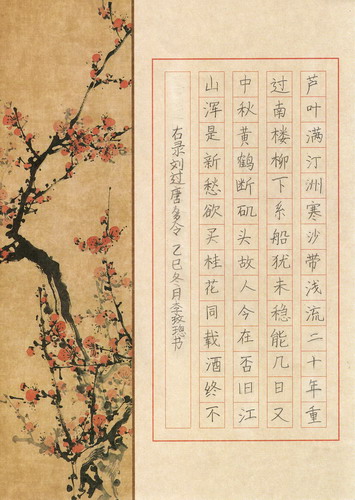 芦叶满汀洲寒沙带浅流二十年重
过南楼柳下系船犹未稳能几日又
中秋黄鹤断矶头故人今在否旧江
山浑是新愁欲买桂花同载酒终不
右录刘过唐多令乙巳冬月李玫瑰书